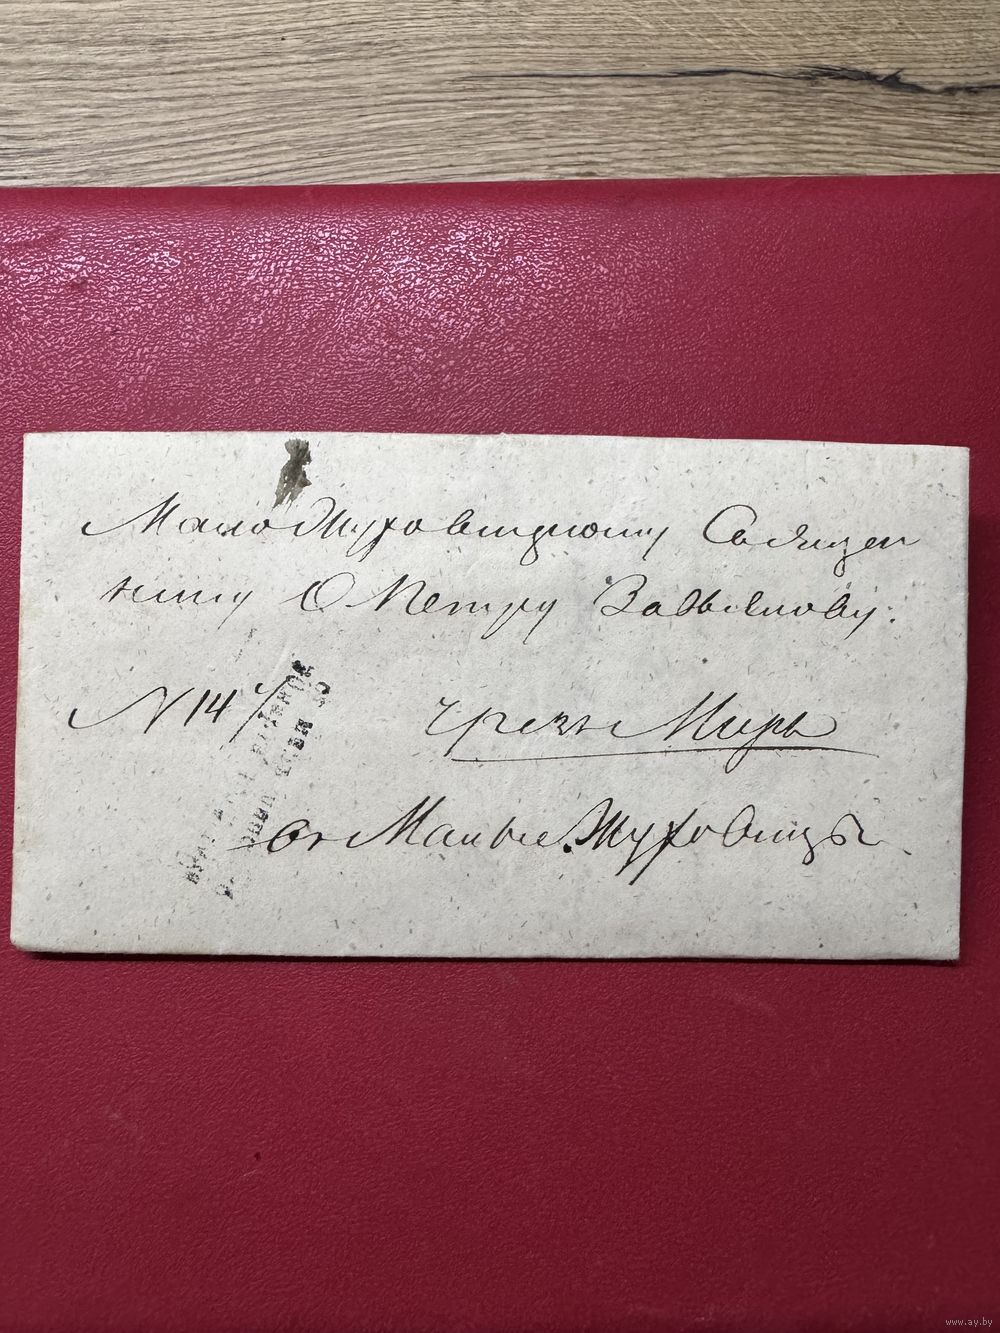 Маложуховицкому Священ
нику О Петру Завьялову.
N 14
чрезъ Миръ
въ Малые Жуховицы
www.ay.by